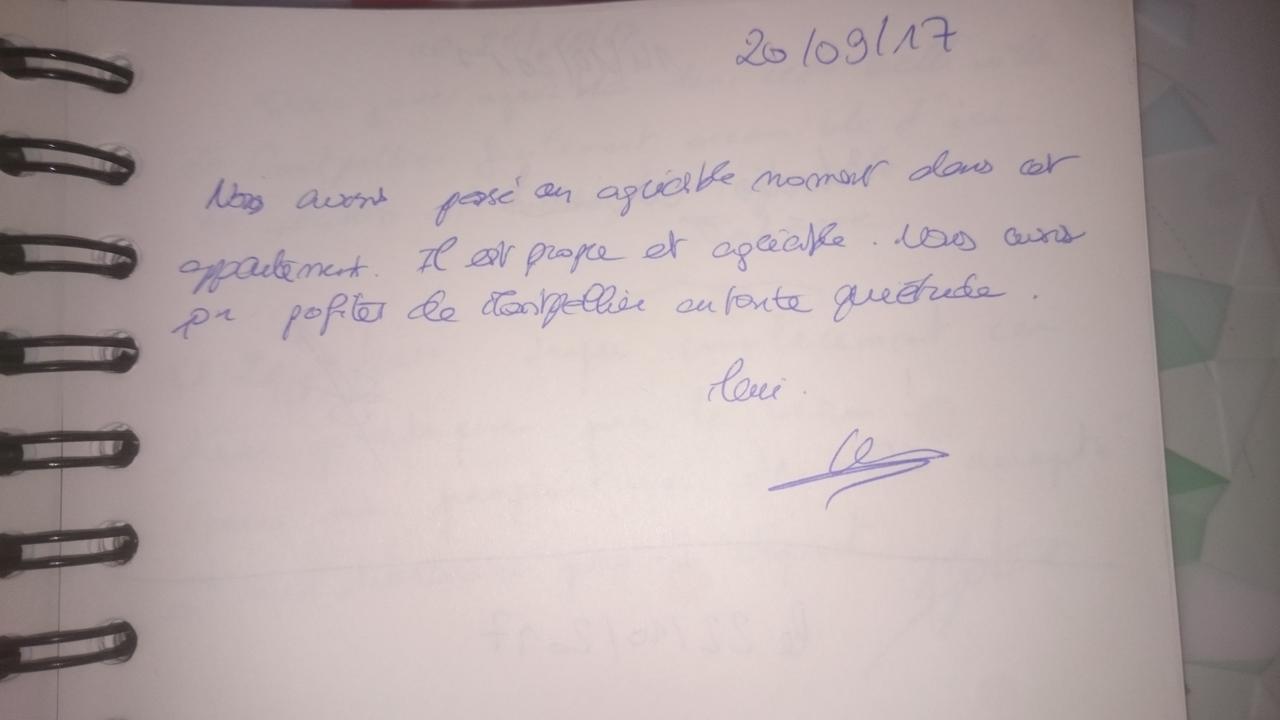 20/09/17
Nous avons passé un agréable moment dans cet
appartement. Il est propre et agréable. Nous avons
pu profiter de Montpellier en toute quiétude.
Merci.